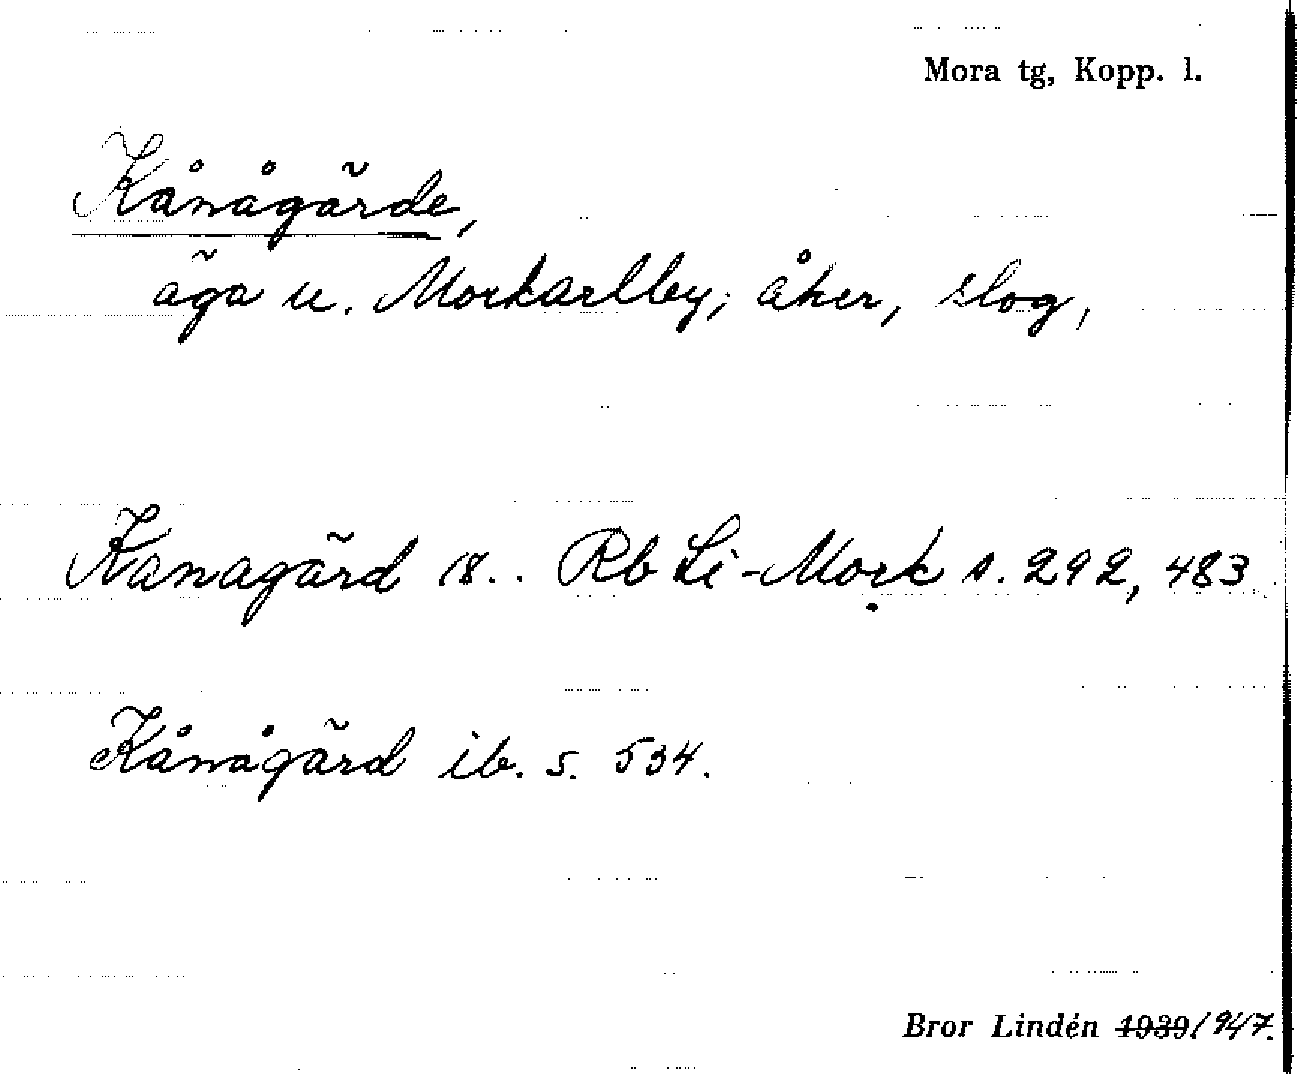 Mora tg, Kopp. l.
Kånågärde,
äga u. Morkarlby; åker, slog,
Kanagärd 18.. Rb Li-Mork s. 292, 483.
Kånågärd ib. s. 534.
Bror Lindén 1939/947.